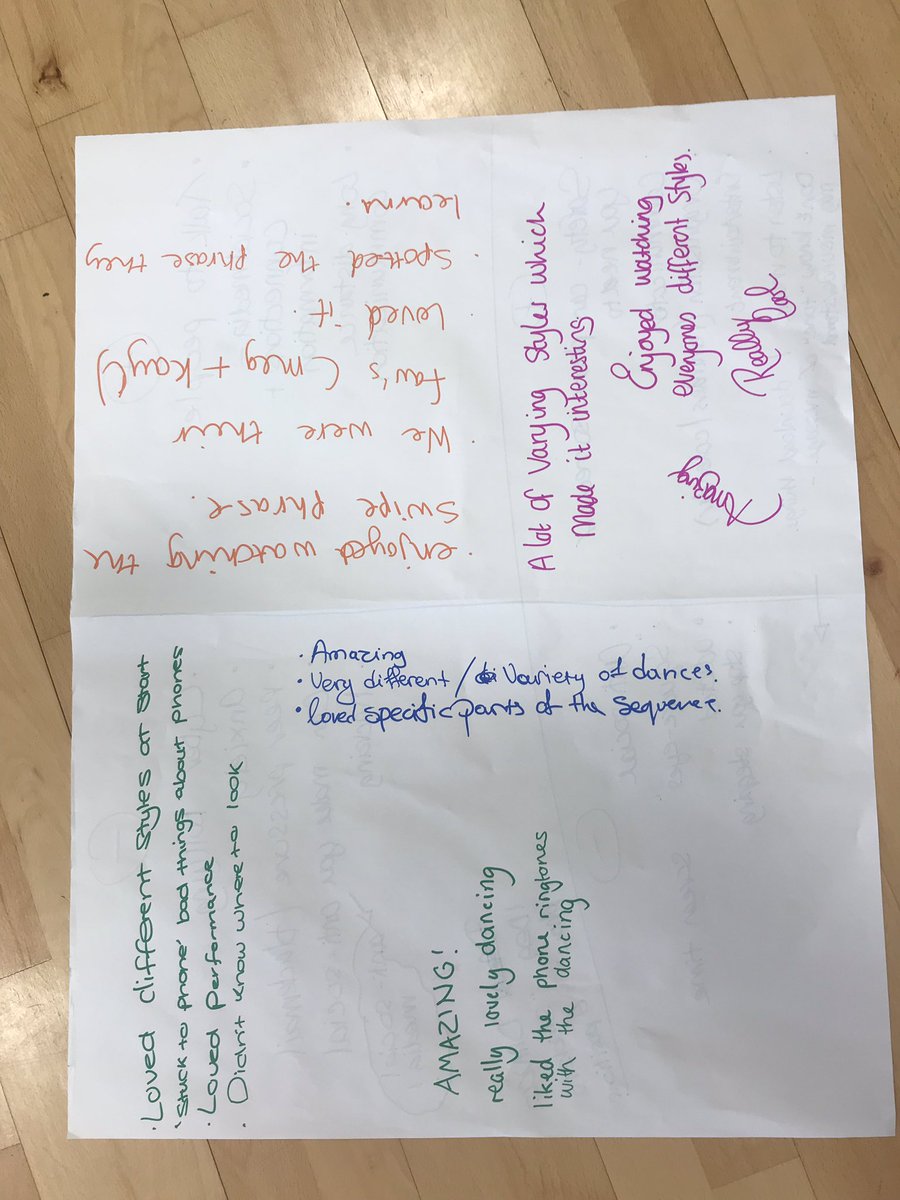 · enjoyed watching the
swipe phrase.
· We were their
fav's (meg + kayt)
· Loved it.
· Spotted the phrase they
learns.
A lot of Varying Styles which
Made it interesting.
Enjoyed watching
everyones different Styles.
Amazing
Really cool
· Amazing
· Very different / Variety of dances.
· loved specific parts of the sequence.
· Loved different styles at start
· 'Stuck to phone' bad things about phones
· Loved performance
· Didn't know where to look
AMAZING!
really lovely dancing
liked the phone ringtones
with the dancing